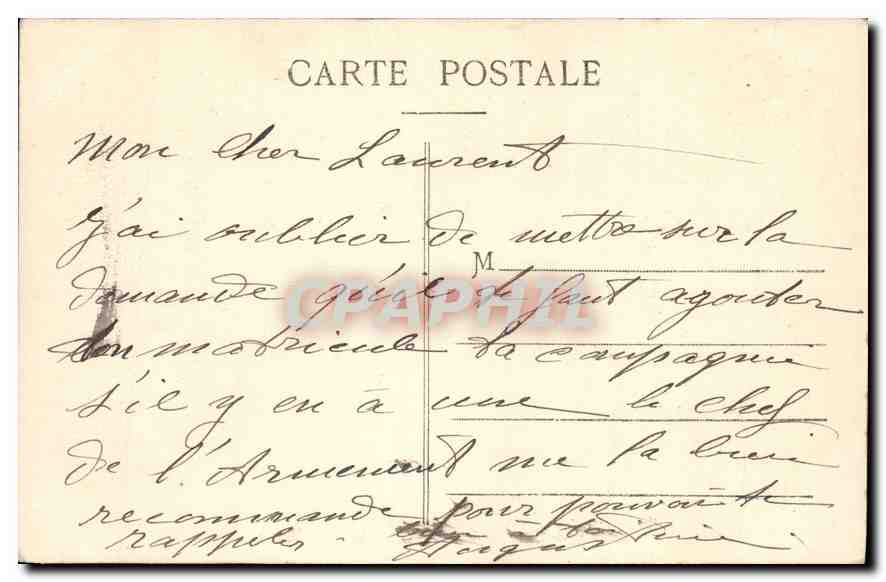 CARTE POSTALE
Mon Cher Laurent
J'ai oublier de mettre sur la
M
demande qu'il te faut agouter
ton matricule ta compagnie
s'il y en à une le chef
de l'Armement me la bien
recommande pour pouvoir te
rappeler
CPAPHIL